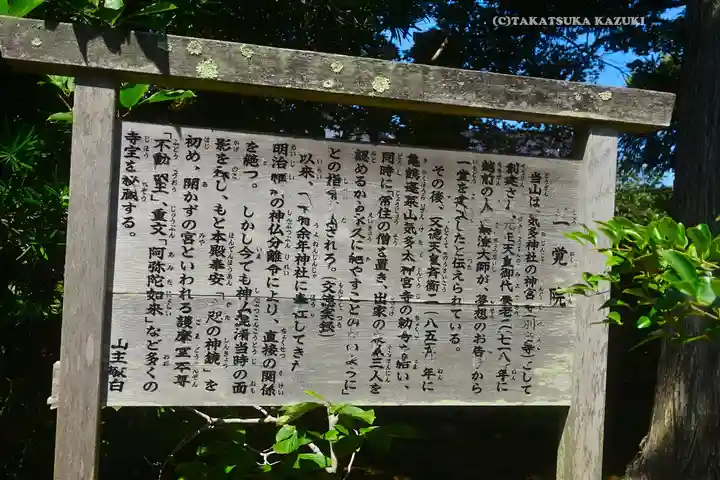 (C)TAKATSUKA KAZUKI
一覚院
当山は、気多神社の神宮寺
として
創建さ 元正天皇御代 養老二(七一八)年に
越前の人 泰澄大師が 夢想のお告 から
一堂を したと伝えられている。
その後、文徳天皇斉衡二(八五五)年に
亀鶴蓬莱山気多大神宮寺の勅号を賜い、
同時に常住の僧を置き、出家の 三人を
認めるから永久に絶やすこと ように」
との指 される。(文徳実録)
以来、 有余年神社に奉仕してき
明治 の神仏分離令により、直接の関係
を絶つ。しかし今でも神仏混淆当時の面
影を残し、もと本殿奉安「 の神鏡」を
初め、開かずの宮といわれる護摩堂本尊
「不動明王」、重文「阿弥陀如来」など多くの
寺宝を秘蔵する。
山主敬白